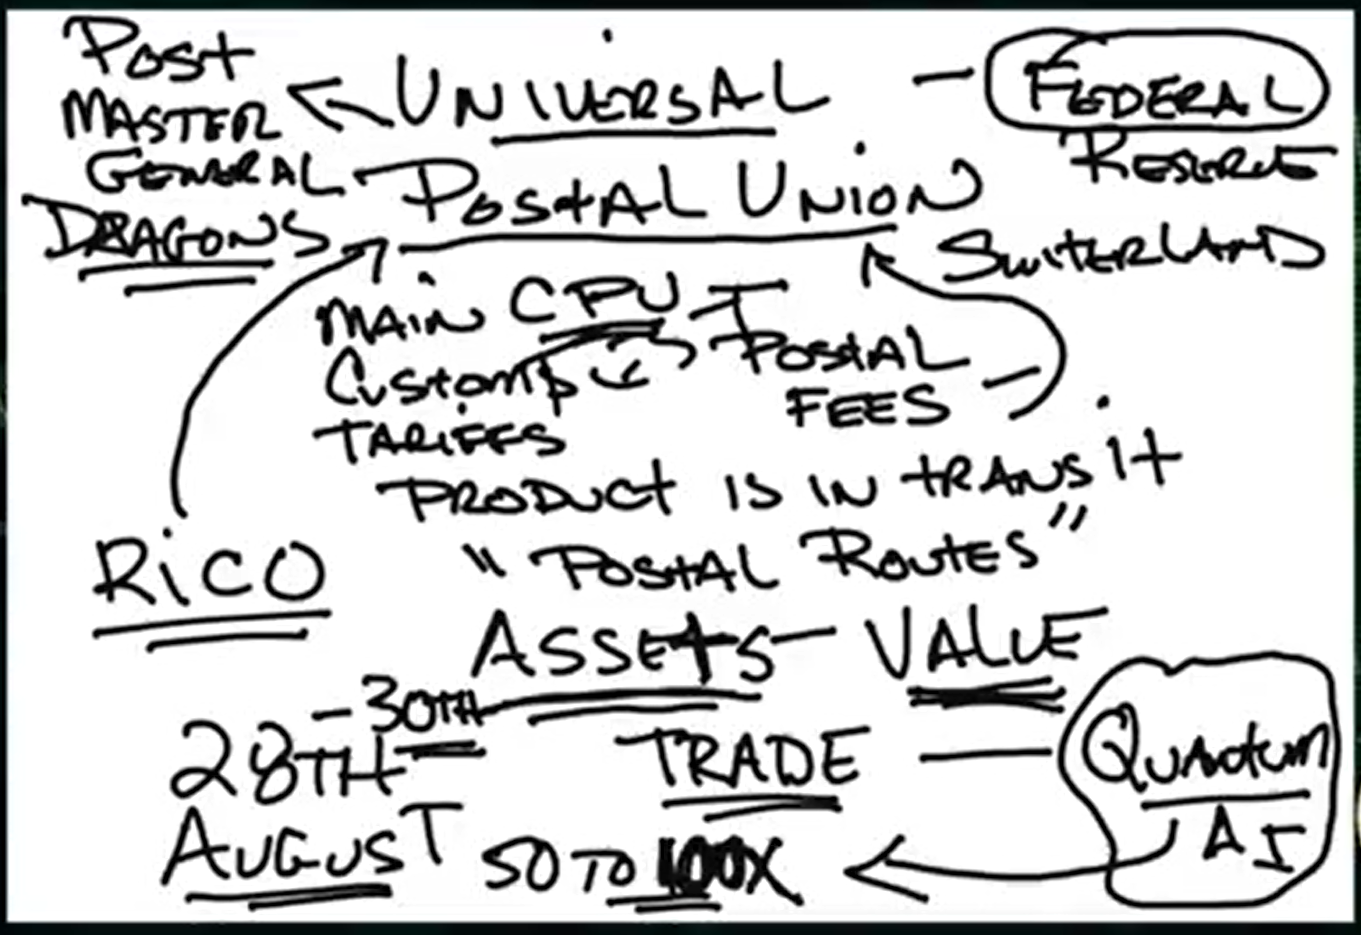 POST
MASTER
GENERAL
DRAGONS
UNIVERSAL
POSTAL UNION
FEDERAL
RESERVE
SWITERLAND
MAIN CPU
Customs
TARIFFS
POSTAL
FEES
PRODUCT IS IN TRANSit
"POSTAL ROUTES"
RiCO
ASSEtS - VALUE
- 30TH
28TH
AUGUST
TRADE
50 TO 100X
QUANtum
AI